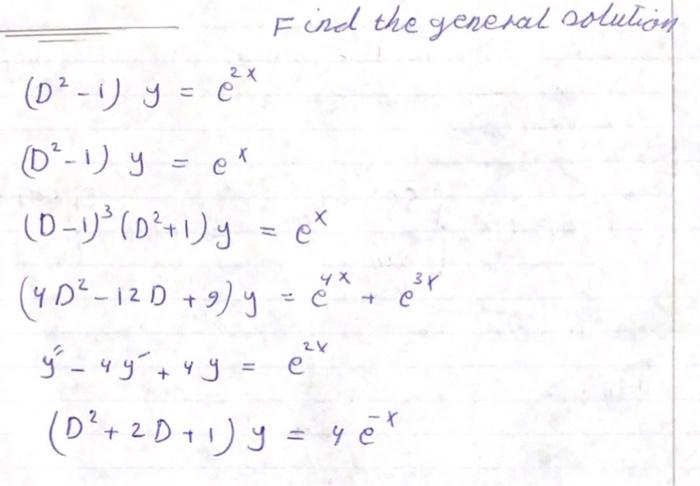 Find the general solution
(D² - 1) y = e²ˣ
(D² - 1) y = eˣ
(D - 1)³ (D² + 1) y = eˣ
(4D² - 12D + 9) y = e⁴ˣ + e³ˣ
y″ - 4y′ + 4y = e²ˣ
(D² + 2D + 1) y = 4 e⁻ˣ